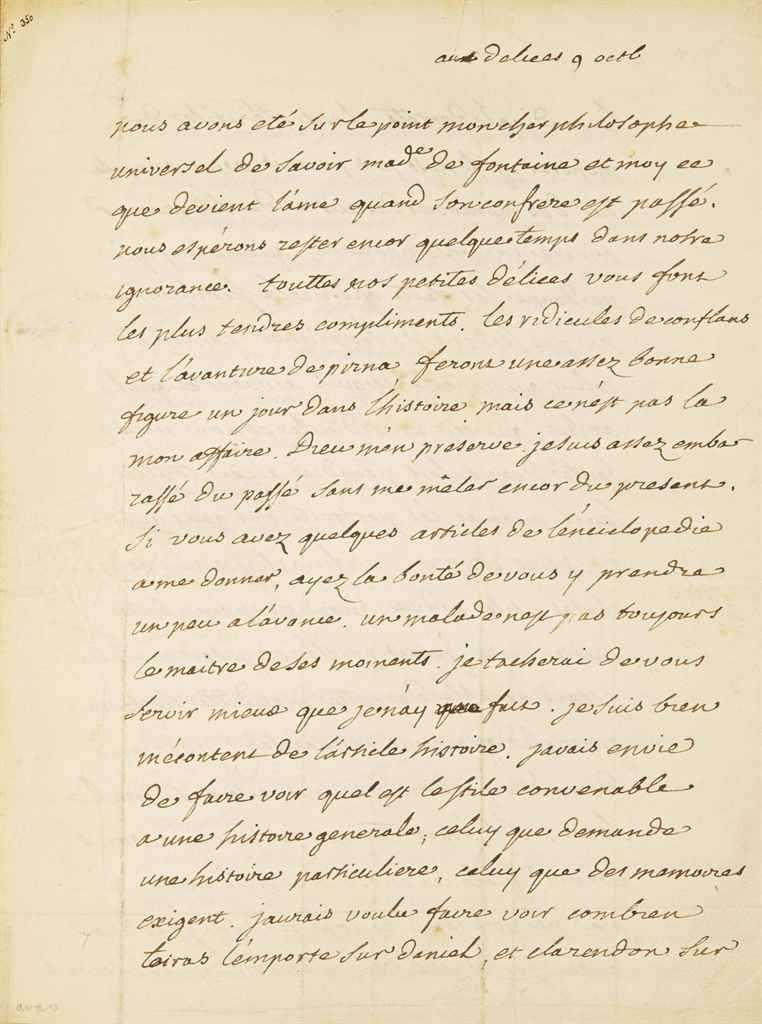 N.° 350
aux delices 9 octb
nous avons eté sur le point mon cher philosophe
universel de savoir made de fontaine et moy ce
que devient l'ame quand son confrere est passé.
nous espérons rester encor quelque temps dans notre
ignorance. touttes nos petites délices vous font
les plus tendres compliments. les ridicules de conflans
et l'avanture de pirna feront une assez bonne
figure un jour dans l'histoire mais ce n'est pas la
mon affaire. Dieu m'en preserve. je suis assez emba
rassé du passé sans me mêler encor du present.
Si vous avez quelques articles de l'enciclopedie
a me donner, ayez la bonté de vous y prendre
un peu a l'avance. un malade nest pas toujours
le maitre de ses moments. je tacherai de vous
servir mieux que je n'ay fait. je suis bien
mécontent de l'article histoire. j'avais envie
de faire voir quel est le stile convenable
a une histoire generale; celuy que demande
une histoire particuliere, celuy que des memoires
exigent. j'aurais voulu faire voir combien
toiras l'emporte sur daniel, et clarendon sur